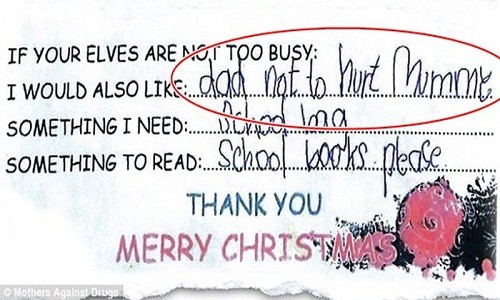 IF YOUR ELVES ARE NOT TOO BUSY:
I WOULD ALSO LIKE: dad not to hurt Mummy
SOMETHING I NEED: School
SOMETHING TO READ: School books please
THANK YOU
MERRY CHRISTMAS
© Mothers Against Drugs